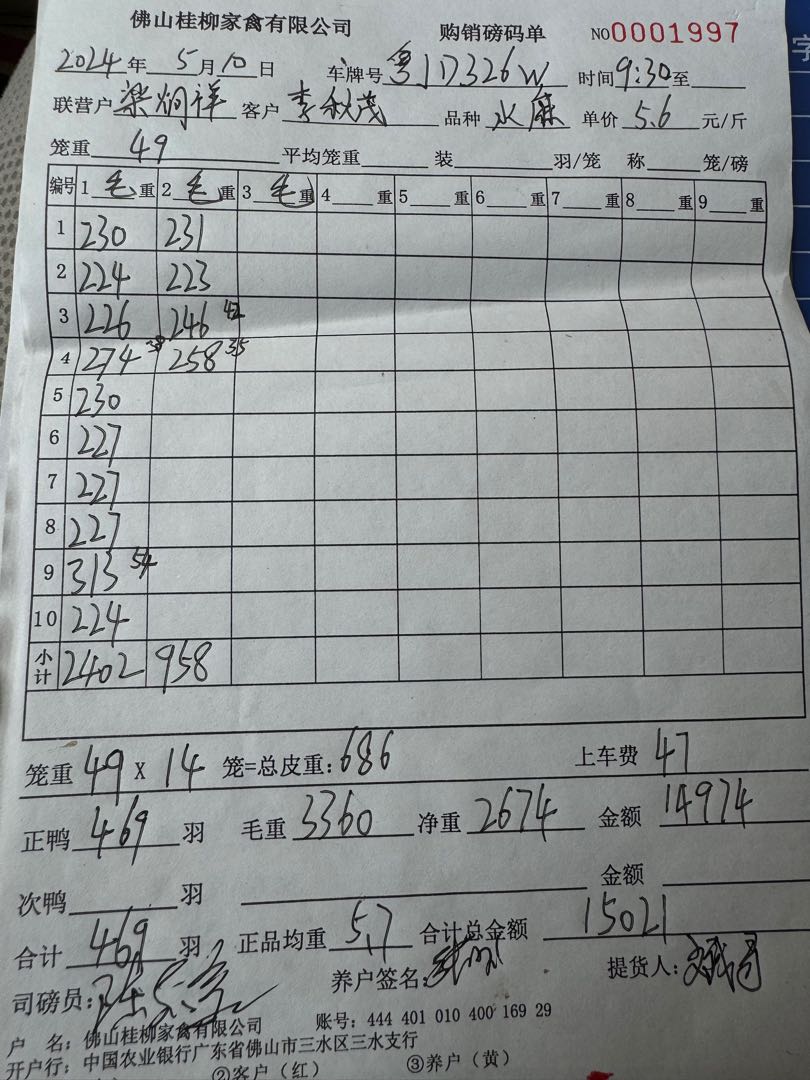 佛山桂柳家禽有限公司 购销磅码单 NO0001997
2024年5月10日 车牌号 粤JD326W 时间9:30至
联营户 梁炯祥 客户 李秋茂 品种 水麻 单价 5.6 元/斤
笼重 49 平均笼重 装 羽/笼 称 笼/磅
编号 1 毛 重 2 毛 重 3 毛 重 4 重 5 重 6 重 7 重 8 重 9 重
1 230 231
2 224 223
3 226 246 42
4 274 38 258 35
5 230
6 227
7 227
8 227
9 313 54
10 224
小计 2402 958
笼重 49 X 14 笼=总皮重: 686 上车费 47
正鸭 469 羽 毛重 3360 净重 2674 金额 14974
次鸭 羽 金额
合计 469 羽 正品均重 5.7 合计总金额 15021
司磅员: 养户签名: 提货人:
户 名: 佛山桂柳家禽有限公司 账号: 444 401 010 400 169 29
开户行: 中国农业银行广东省佛山市三水区三水支行
②客户（红） ③养户（黄）